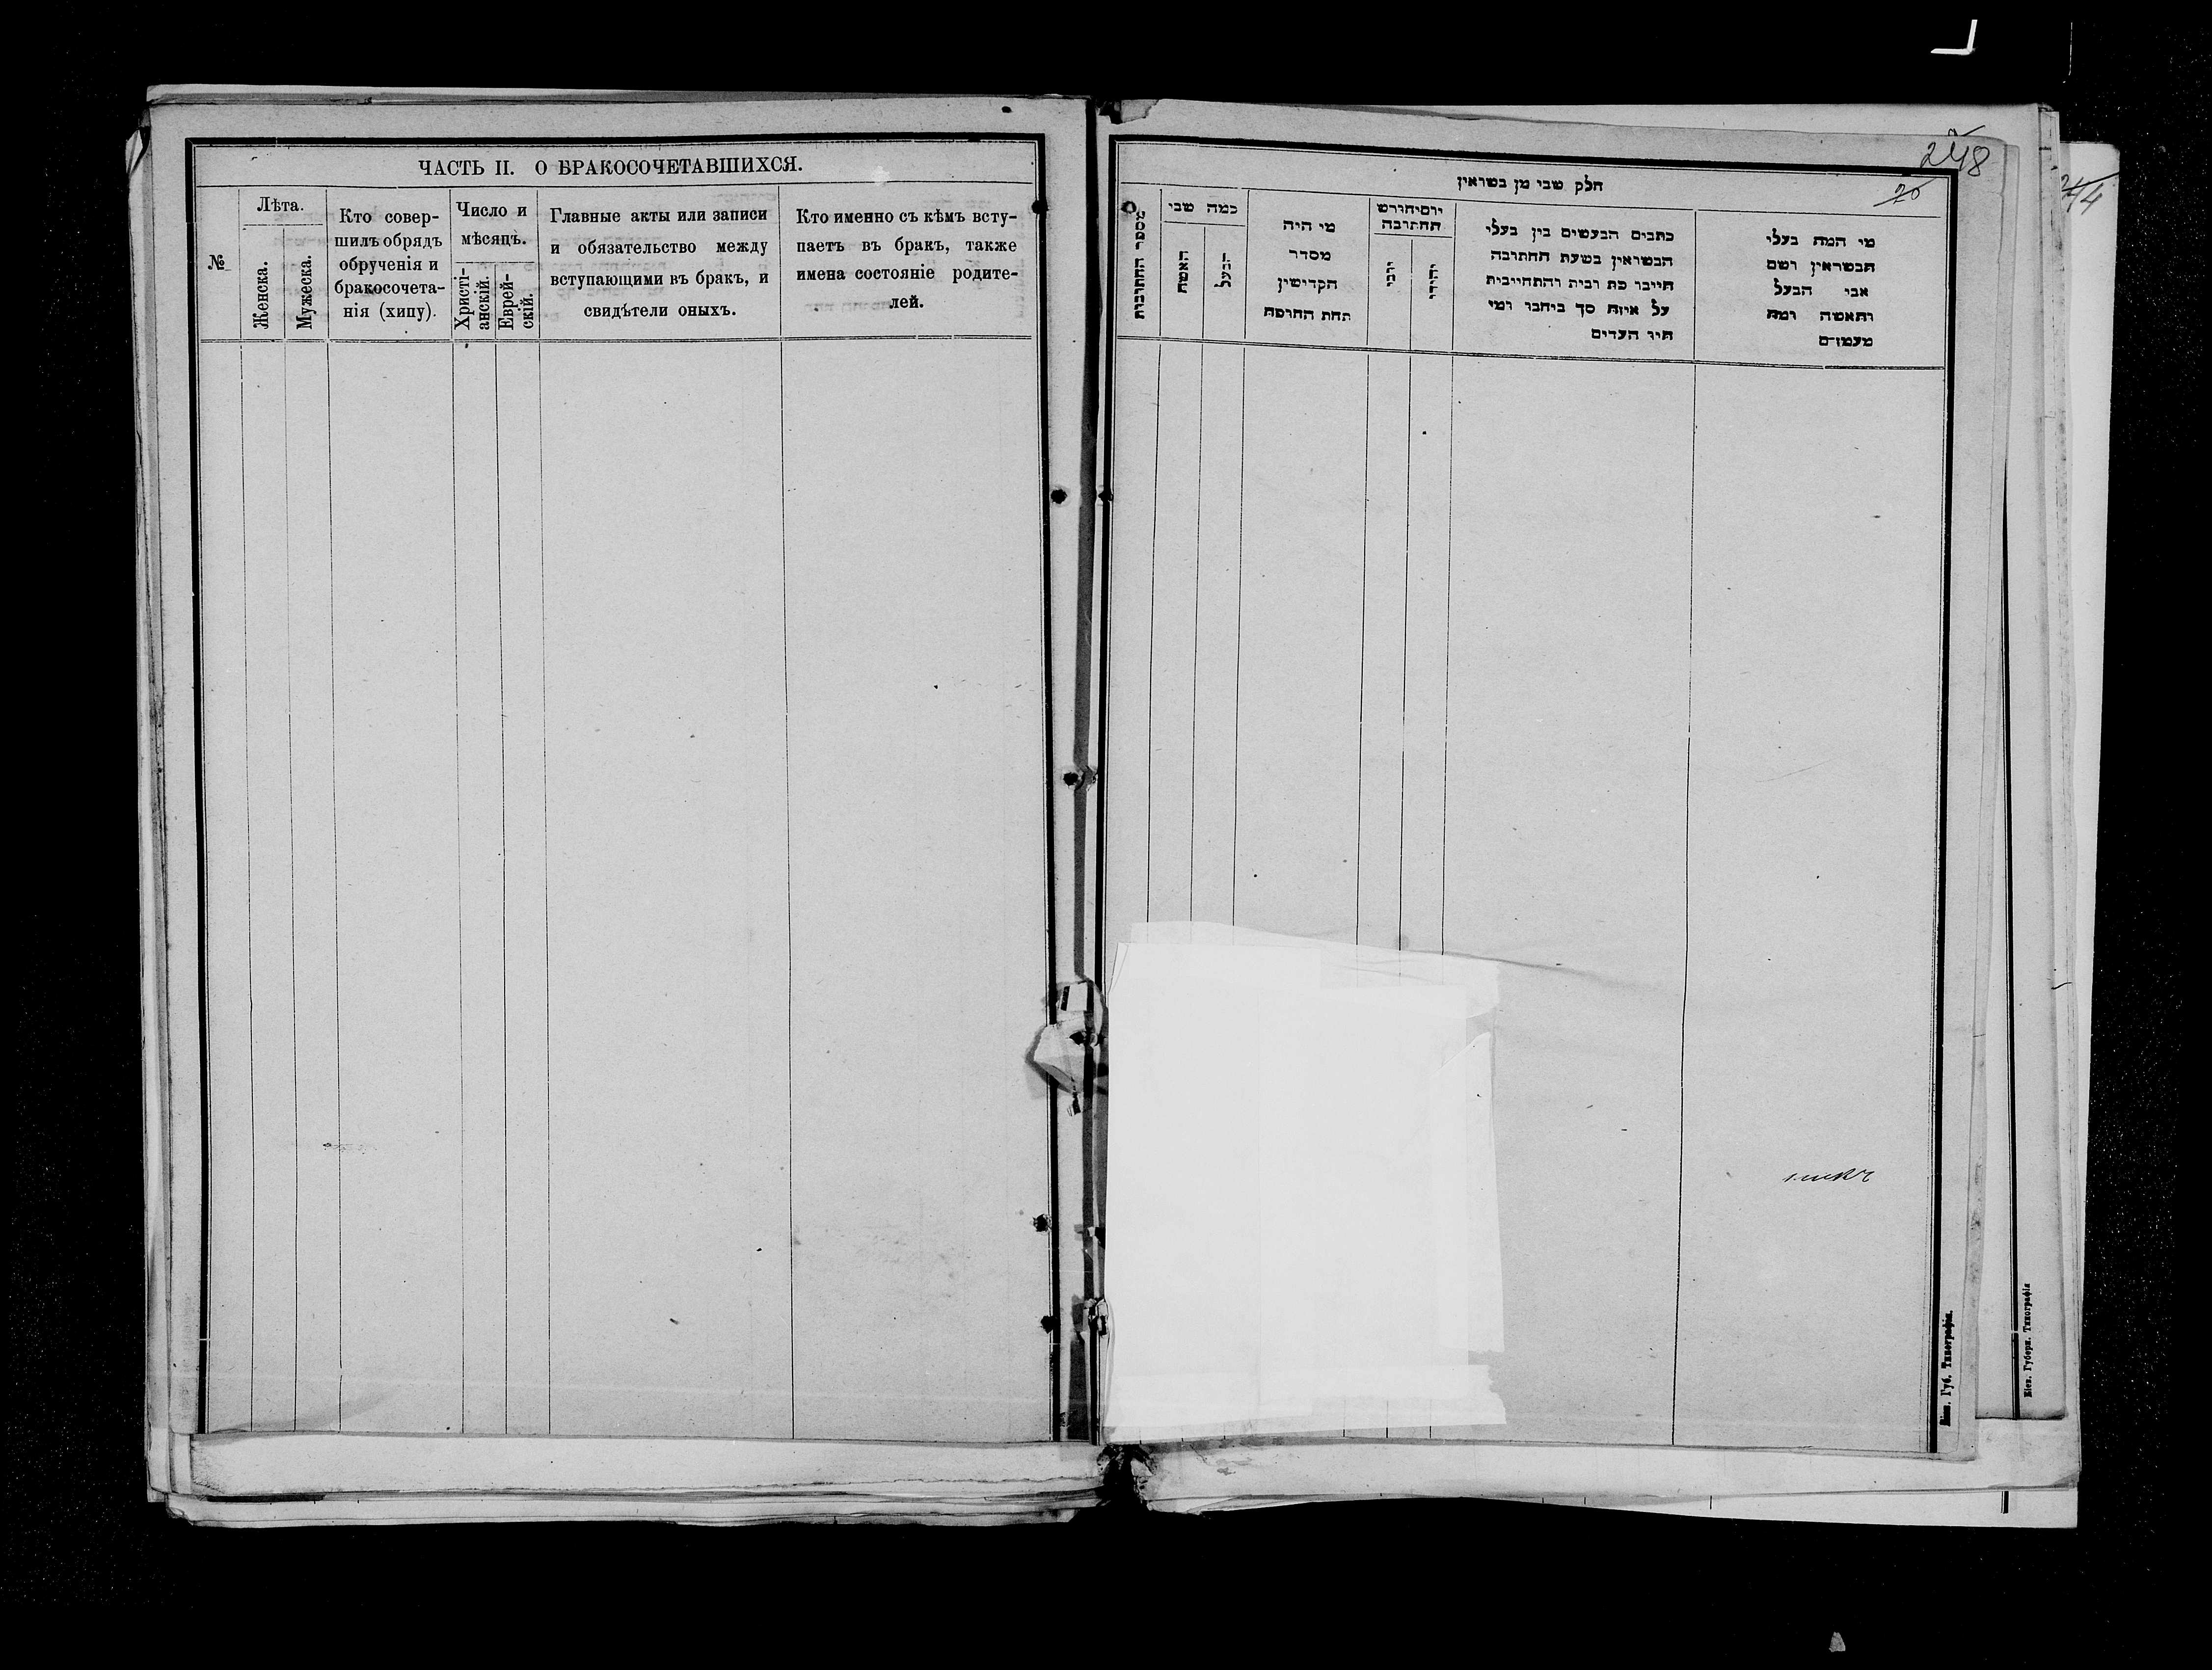 ЧАСТЬ II. О БРАКОСОЧЕТАВШИХСЯ.
№
Лѣта.
Женска.
Мужеска.
Кто совер-
шилъ обрядъ
обрученія и
бракосочета-
нія (хипу).
Число и
мѣсяцъ.
Христі-
анскій.
Еврей-
скій.
Главные акты или записи
и обязательство между
вступающими въ бракъ, и
свидѣтели оныхъ.
Кто именно съ кѣмъ всту-
паетъ въ бракъ, также
имена состояніе родите-
лей.
248
70
חלק שני מן נשואין
מספר החתונות
כמה שני
האשה
הבעל
מי היה
מסדר
הקדישין
תחת החופה
יום וחודש
החתונה
יוני
יהודי
כתבים הנעשים בין בעלי
הנשואין בשעת החתונה
חייבו כח ובית והתחייבית
על איזה סך ביחבו ומי
היו העדים
מי המה בעלי
הנשואין ושם
אבי הבעל
והאשה ומה
מעמדם
Кіев. Губ. Типографія.
Кіев. Губерн. Типографія